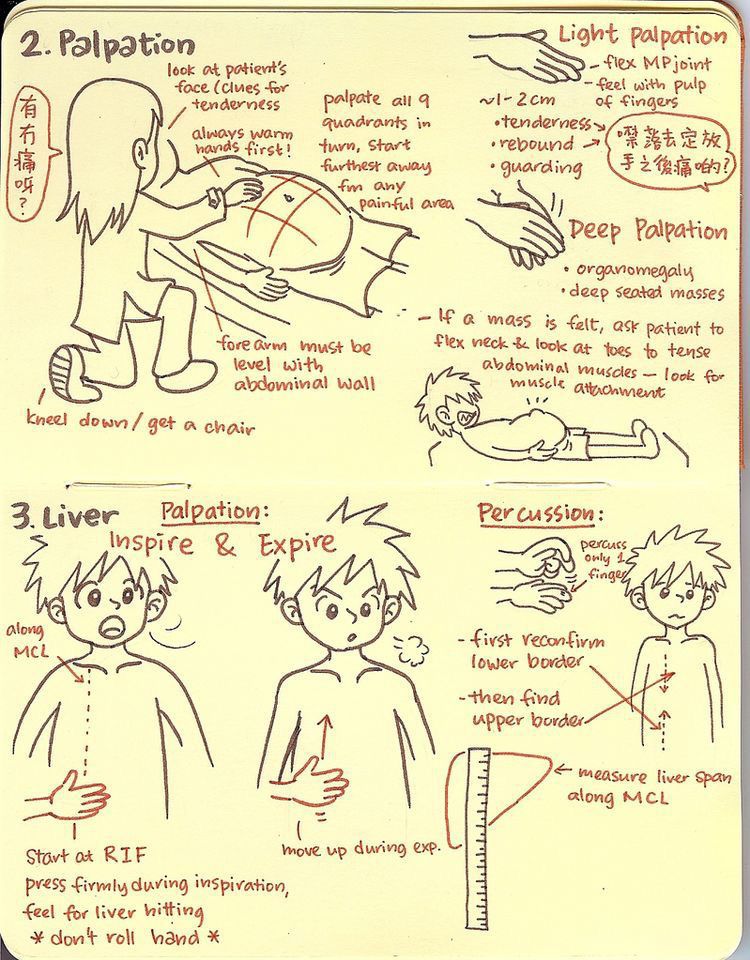 2. Palpation
look at patient's
face (clues for
tenderness
always warm
hands first!
有
冇
痛
呀
?
palpate all 9
quadrants in
turn, start
furthest away
fm any
painful area
forearm must be
level with
abdominal wall
kneel down / get a chair
Light palpation
- flex MP joint
- feel with pulp
of fingers
~1-2cm
• tenderness
• rebound
• guarding
禁落去定放
手之後痛啲?
Deep Palpation
• organomegaly
• deep seated masses
- If a mass is felt, ask patient to
flex neck & look at toes to tense
abdominal muscles - look for
muscle attachment
3. Liver
Palpation:
Inspire & Expire
along
MCL
Start at RIF
press firmly during inspiration,
feel for liver hitting
* don't roll hand *
move up during exp.
Percussion:
percuss
only 1
finger
- first reconfirm
lower border
- then find
upper border
← measure liver span
along MCL